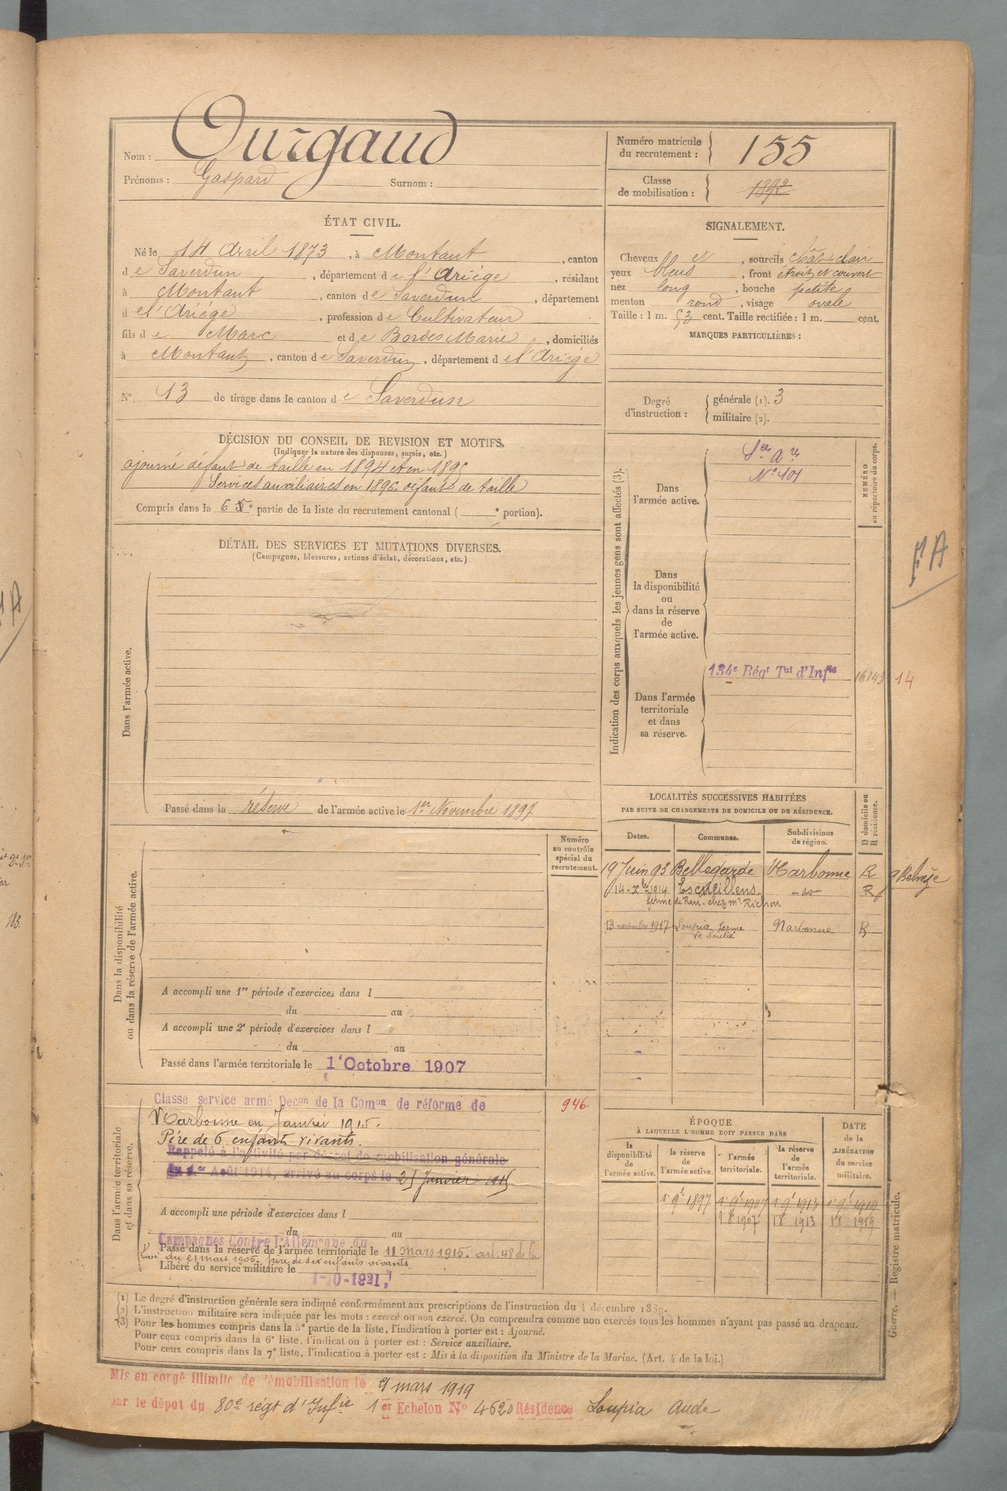 Nom : Ourgaud
Prénoms : Gaspard Surnom :
Numéro matricule du recrutement : 155
Classe de mobilisation : 1892
ÉTAT CIVIL.
Né le 14 Avril 1873, à Montaut, canton
de Saverdun, département de l'Ariège, résidant
à Montaut, canton de Saverdun, département
de l'Ariège, profession de Cultivateur
fils de Marc et de Bordes Marie, domiciliés
à Montaut, canton de Saverdun, département de l'Ariège
N° 13 de tirage dans le canton de Saverdun
SIGNALEMENT.
Cheveux et, sourcils chât. clair
yeux bleus, front étroit et couvert
nez long, bouche petite
menton rond, visage ovale
Taille : 1 m. 53 cent. Taille rectifiée : 1 m. cent.
MARQUES PARTICULIÈRES :
Degré d'instruction : générale (1). 3
militaire (2).
DÉCISION DU CONSEIL DE REVISION ET MOTIFS.
(Indiquer la nature des dispenses, sursis, etc.)
ajourné défaut de taille en 1894 et en 1895
Services auxiliaires en 1896 défaut de taille
Compris dans la 6e partie de la liste du recrutement cantonal ( e portion).
DÉTAIL DES SERVICES ET MUTATIONS DIVERSES.
(Campagnes, blessures, actions d'éclat, décorations, etc.)
Dans l'armée active.
Passé dans la réserve de l'armée active le 1er Novembre 1897
Indication des corps auxquels les jeunes gens sont affectés (3).
NUMÉRO au répertoire du corps.
Dans l'armée active.
N° 401
Dans la disponibilité ou dans la réserve de l'armée active.
Dans l'armée territoriale et dans sa réserve.
134e Régt Tal d'Infie
16143
14
FA
LOCALITÉS SUCCESSIVES HABITÉES
PAR SUITE DE CHANGEMENTS DE DOMICILE OU DE RÉSIDENCE.
Dates. Communes. Subdivisions de région. D domicile ou R résidence.
19 Juin 98 Bellegarde Narbonne R
14-Xbre 1914 Escueillens - do - R
ferme de chez Mr
13 novembre 1917 Loupia ferme Narbonne R
Dans la disponibilité ou dans la réserve de l'armée active.
Numéro au contrôle spécial du recrutement.
A accompli une 1re période d'exercices dans l
du au
A accompli une 2e période d'exercices dans l
du au
Passé dans l'armée territoriale le 1er Octobre 1907
Dans l'armée territoriale et dans sa réserve.
Classé service armé Decon de la Comon de réforme de
Narbonne en Janvier 1915.
946.
Père de 6 enfants vivants.
Rappelé à l'activité par décret de mobilisation générale
du 1er Août 1914, arrivé au corps le 25 Janvier 1915
A accompli une période d'exercices dans l
du au
Campagnes Contre l'Allemagne du
Passé dans la réserve de l'armée territoriale le 11 mars 1915. art. 48 de la
loi du 21 mars 1905. Père de six enfants vivants.
Libéré du service militaire le 1-10-1921.
ÉPOQUE À LAQUELLE L'HOMME DOIT PASSER DANS
DATE de la LIBÉRATION du service militaire.
la disponibilité de l'armée active. la réserve de l'armée active. l'armée territoriale. la réserve de l'armée territoriale.
1er 9bre 1897 1er 9bre 1907 1er 9bre 1913 1er 9bre 1919
1907 1913 1919
Guerre. — Registre matricule.
(1) Le degré d'instruction générale sera indiqué conformément aux prescriptions de l'instruction du 4 décembre 1889.
(2) L'instruction militaire sera indiquée par les mots : exercé ou non exercé. On comprendra comme non exercés tous les hommes n'ayant pas passé au drapeau.
(3) Pour les hommes compris dans la 5e partie de la liste, l'indication à porter est : Ajourné.
Pour ceux compris dans la 6e liste, l'indication à porter est : Service auxiliaire.
Pour ceux compris dans la 7e liste, l'indication à porter est : Mis à la disposition du Ministre de la Marine. (Art. 4 de la loi.)
Mis en congé illimité de démobilisation le 9 mars 1919
par le dépôt du 80e régt d'Infie 1er Echelon N° 4620 Résidence Loupia Aude